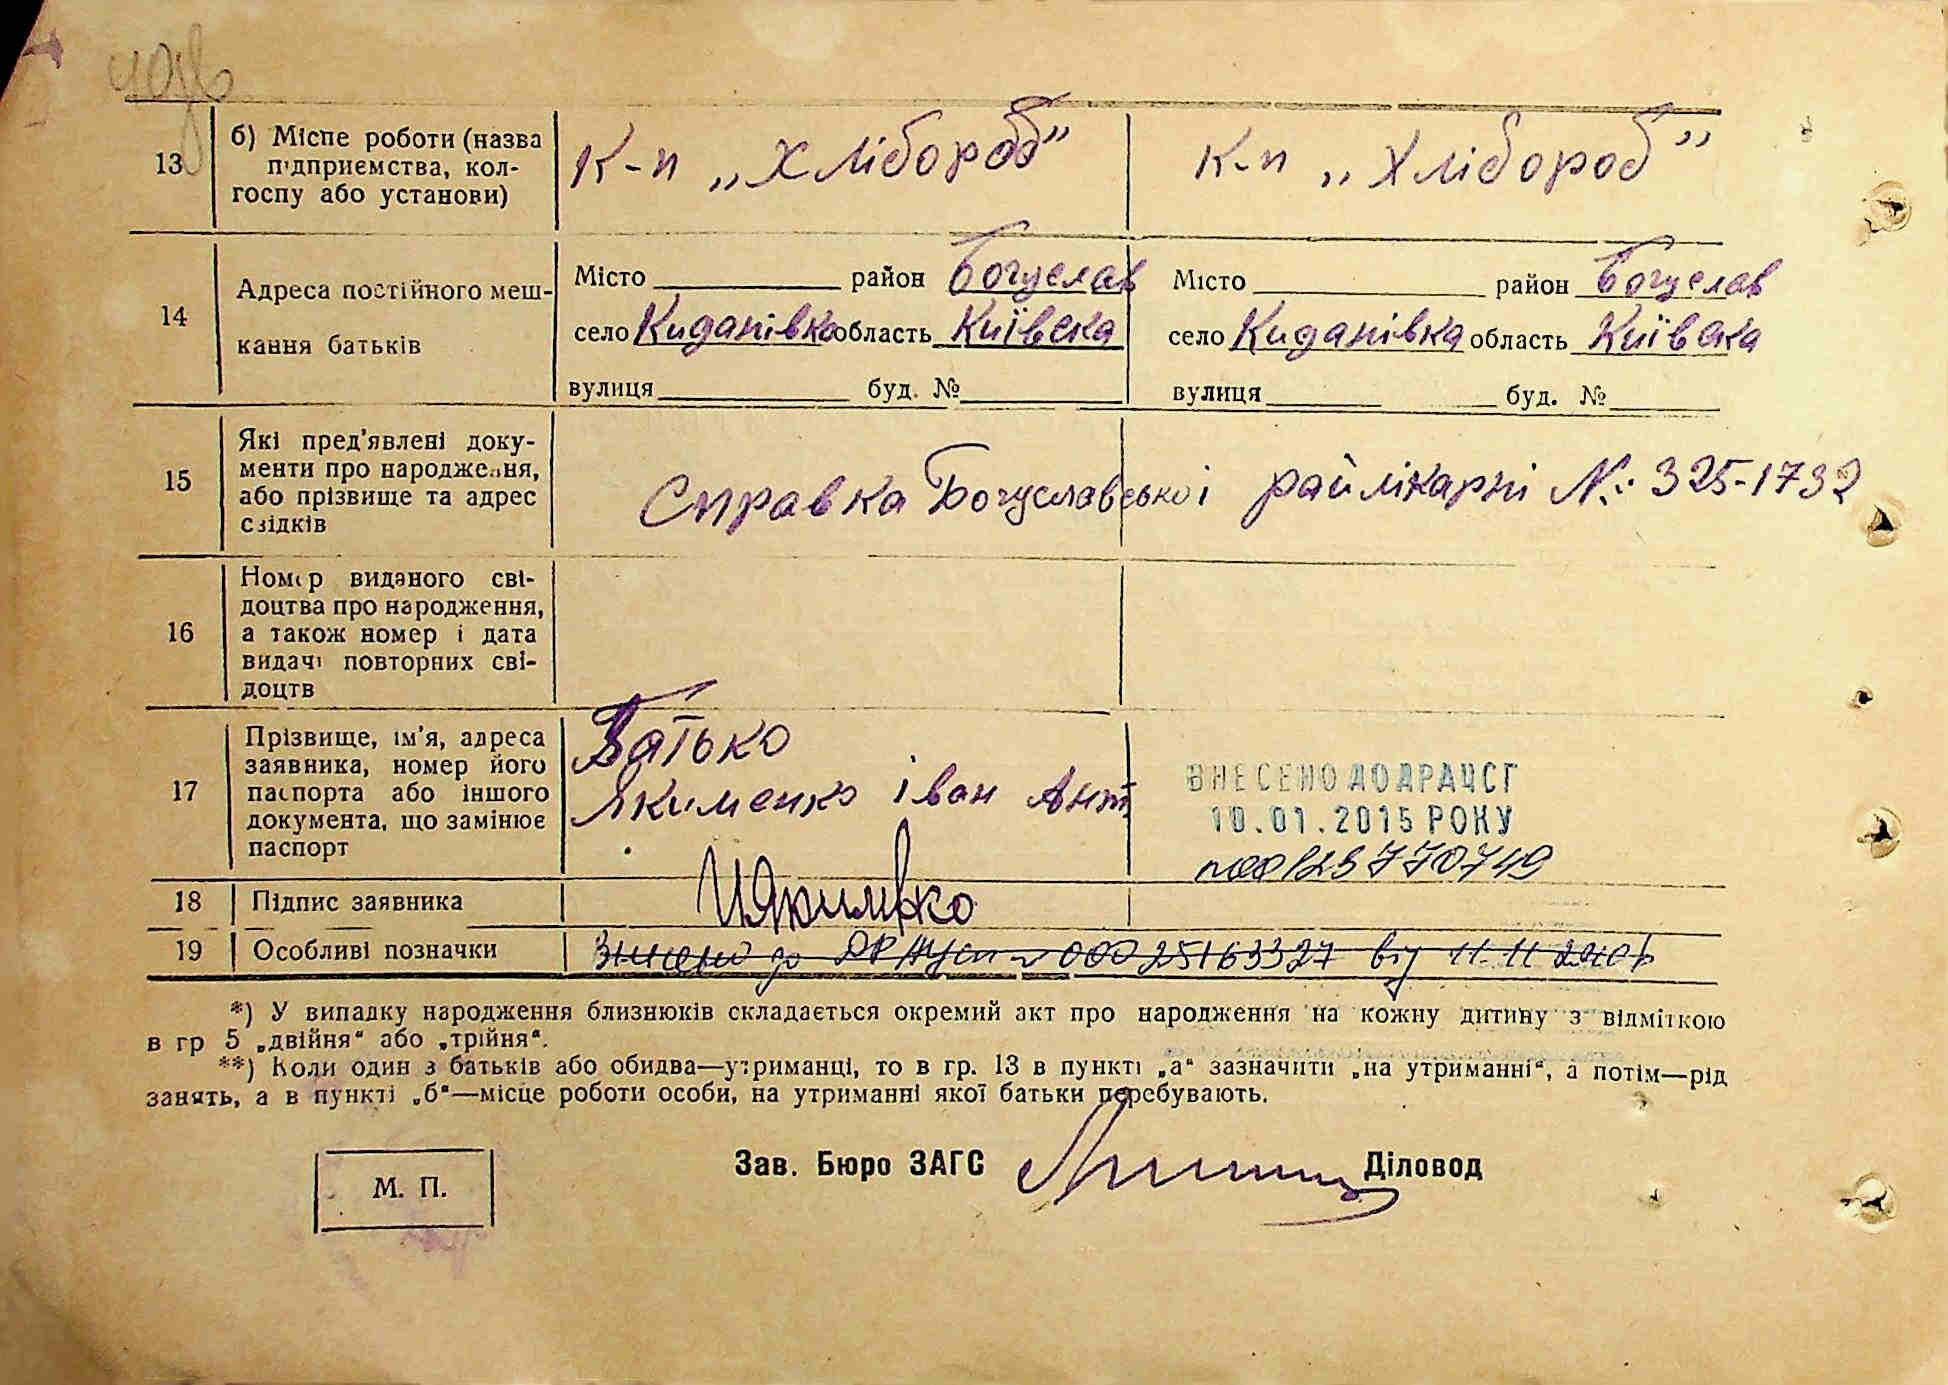 13
б) Місце роботи (назва
підприємства, кол-
госпу або установи)
к-п „Хлібороб”
к-п „Хлібороб”
14
Адреса постійного меш-
кання батьків
Місто район Богуслав
село Киданівка область Київська
вулиця буд. №
Місто район Богуслав
село Киданівка область Київська
вулиця буд. №
15
Які пред’явлені доку-
менти про народження,
або прізвище та адрес
свідків
Справка Богуславської райлікарні №: 325-1732
16
Номер виданого сві-
доцтва про народження,
а також номер і дата
видачі повторних сві-
доцтв
17
Прізвище, ім’я, адреса
заявника, номер його
паспорта або іншого
документа, що замінює
паспорт
Батько
Якименко Іван Ант
ВНЕСЕНО ДО ДРАЦСГ
10.01.2015 РОКУ
№00123770749
18
Підпис заявника
ИЯкименко
19
Особливі позначки
Внесено до 00025163327 від 11.11
*) У випадку народження близнюків складається окремий акт про народження на кожну дитину з відміткою
в гр 5 „двійня“ або „трійня“.
**) Коли один з батьків або обидва—утриманці, то в гр. 13 в пункті „а“ зазначити „на утриманні“, а потім—рід
занять, а в пункті „б“—місце роботи особи, на утриманні якої батьки перебувають.
М. П.
Зав. Бюро ЗАГС
Діловод